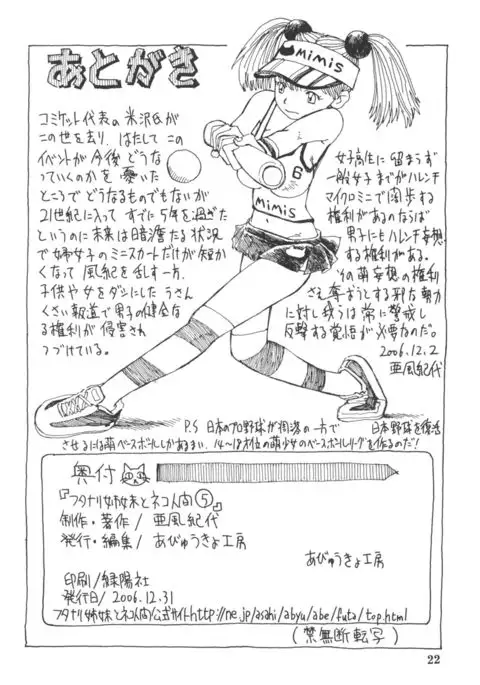 あとがき
コミケット代表の米沢氏が
この世を去り、はたして この
イベントが今後 どうな
っていくのかを 憂いた
ところで どうなるものでもないが
21世紀に入って すでに5年を過ぎた
というのに未来は暗澹たる状況
で 婦女子のミニスカートだけが短か
くなって 風紀を乱す一方、
子供や女をダシにした うさん
くさい報道で男子の健全な
る権利が 侵害され
つづけている。
女子高生に留まらず
一般女子までがハレンチ
マイクロミニで闊歩する
権利があるのならば
男子にもハレンチ妄想
する権利がある。
その萌妄想の権利
さえ奪おうとする邪な勢力
に対し我らは常に警戒し
反撃する覚悟が必要なのだ。
2006.12.2
亜風紀代
MiMiS
6
MiMiS
P.S 日本のプロ野球が凋落の一方で 日本野球を復活
させるには萌ベースボールしかあるまい、14～17才位の萌少女のベースボールリーグを作るのだ!
奥付
『フタナリ姉妹とネコ人間⑤』
制作・著作/ 亜風紀代
発行・編集/ あびゅうきょ工房
あびゅうきょ工房
印刷/緑陽社
発行日/ 2006.12.31
フタナリ姉妹とネコ人間公式サイトhttp://ne.jp/asahi/abyu/abe/futa/top.html
(禁無断転写)
22